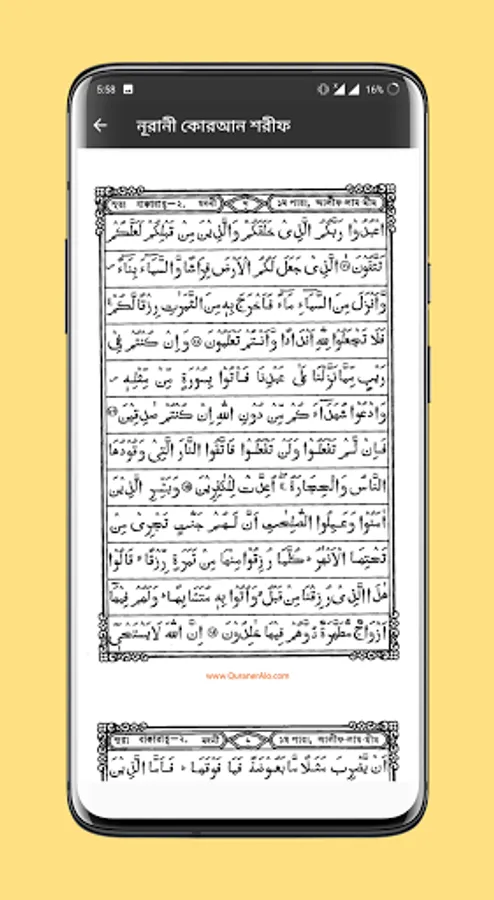 5:58
16%
নূরানী কোরআন শরীফ
সূরা বাক্বারাহ্-২, মদনী ৭ ১ম পারা, আলীফ-লাম-মীম
اعْبُدُوا رَبَّكُمُ الَّذِىْ خَلَقَكُمْ وَالَّذِيْنَ مِنْ قَبْلِكُمْ لَعَلَّكُمْ
تَتَّقُوْنَ ۙ الَّذِىْ جَعَلَ لَكُمُ الْاَرْضَ فِرَاشًا وَّالسَّمَآءَ بِنَآءً
وَّاَنْزَلَ مِنَ السَّمَآءِ مَآءً فَاَخْرَجَ بِهٖ مِنَ الثَّمَرٰتِ رِزْقًا لَّكُمْ
فَلَا تَجْعَلُوْا لِلّٰهِ اَنْدَادًا وَّاَنْتُمْ تَعْلَمُوْنَ وَاِنْ كُنْتُمْ فِىْ
رَيْبٍ مِّمَّا نَزَّلْنَا عَلٰى عَبْدِنَا فَاْتُوْا بِسُوْرَةٍ مِّنْ مِّثْلِهٖ
وَادْعُوْا شُهَدَآءَ كُمْ مِّنْ دُوْنِ اللّٰهِ اِنْ كُنْتُمْ صٰدِقِيْنَ
فَاِنْ لَّمْ تَفْعَلُوْا وَلَنْ تَفْعَلُوْا فَاتَّقُوا النَّارَ الَّتِىْ وَقُوْدُهَا
النَّاسُ وَالْحِجَارَةُ اُعِدَّتْ لِلْكٰفِرِيْنَ وَبَشِّرِ الَّذِيْنَ
اٰمَنُوْا وَعَمِلُوا الصّٰلِحٰتِ اَنَّ لَهُمْ جَنّٰتٍ تَجْرِىْ مِنْ
تَحْتِهَا الْاَنْهٰرُ كُلَّمَا رُزِقُوْا مِنْهَا مِنْ ثَمَرَةٍ رِّزْقًا قَالُوْا
هٰذَا الَّذِىْ رُزِقْنَا مِنْ قَبْلُ وَاُتُوْا بِهٖ مُتَشَابِهًا وَلَهُمْ فِيْهَا
اَزْوَاجٌ مُّطَهَّرَةٌ وَّهُمْ فِيْهَا خٰلِدُوْنَ اِنَّ اللّٰهَ لَا يَسْتَحْىٖ
www.QuranerAlo.com
সূরা বাক্বারাহ্-২, মদনী ৮ ১ম পারা, আলীফ-লাম-মীম
اَنْ يَّضْرِبَ مَثَلًا مَّا بَعُوْضَةً فَمَا فَوْقَهَا فَاَمَّا الَّذِيْنَ